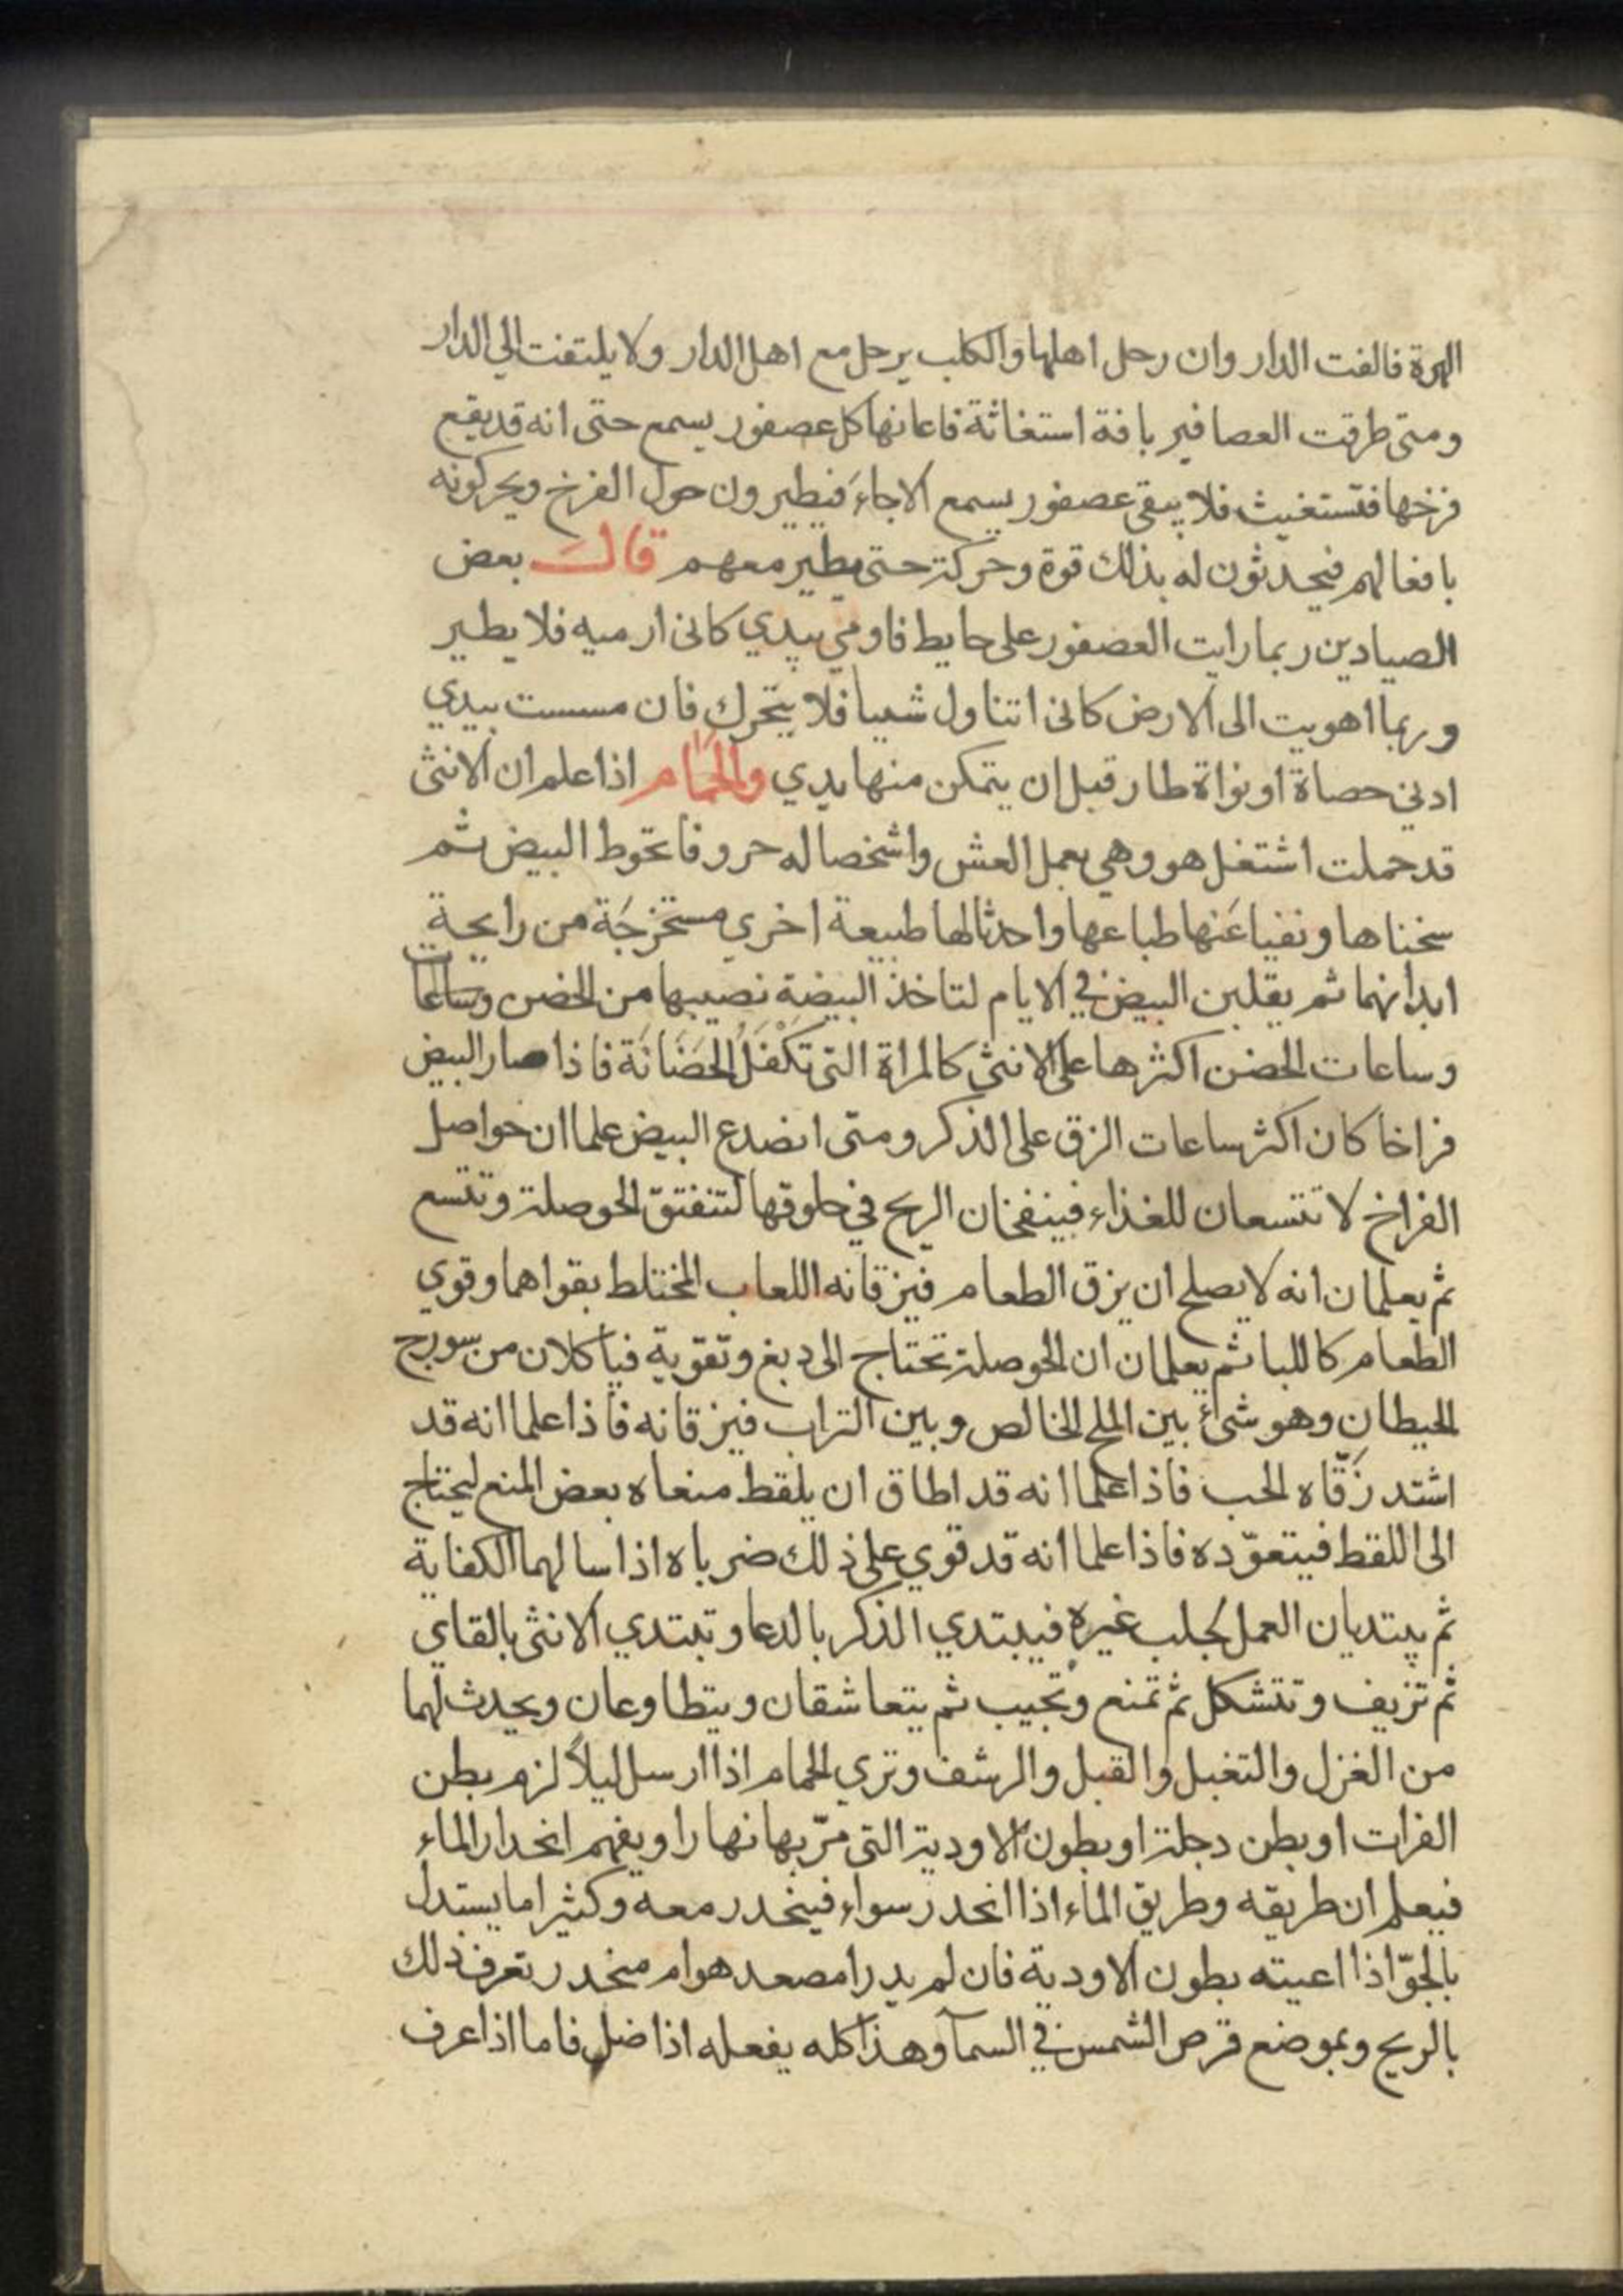 الهرة فالفت الدار وان رحل اهلها والكلب يرحل مع اهل الدار ولا يلتفت الي الدار
ومتى طرقت العصافير بافة استغاثة فاعانها كل عصفور يسمع حتى انه قد يقع
فرخها فتستغيث فلا يبقى عصفور يسمع الاجاء فيطيرون حول الفرخ ويحركونه
بافعالهم فيحدثون له بذلك قوة وحركة حتى يطير معهم قال بعض
الصيادين ربما رايت العصفور على حايط فاومي بيدي كانى ارميه فلا يطير
وربما اهويت الى الارض كانى اتناول شيا فلا يتحرك فان مسست بيدي
ادني حصاة او نواة طار قبل ان يتمكن منها يدي والحمام اذا علم ان الانثى
قد حملت اشتغل هو وهي بعمل العش واشخصا له حروفا تحوط البيض ثم
سخناها ونفيا عنها طباعها واحدثا لها طبيعة اخري مستخرجة من رايحة
ابدانهما ثم يقلبن البيض في الايام لتاخذ البيضة نصيبها من الحضن وساعات
وساعات الحضن اكثرها على الانثى كالمراة التى تكفل الحضانة فاذا صار البيض
فراخا كان اكثر ساعات الزق على الذكر ومتى انصدع البيض علما ان حواصل
الفراخ لا تتسعان للغذاء فينفخان الريح في حلوقها لتنفتق الحوصلة وتتسع
ثم يعلمان انه لا يصلح ان يزق الطعام فيزقانه اللعاب المختلط بقواهما وقوي
الطعام كاللبا ثم يعلمان ان الحوصلة تحتاج الى دبغ وتقوية فياكلان من سورج
الحيطان وهو شىء بين الملح الخالص وبين التراب فيزقانه فاذا علما انه قد
اشتد زقاه الحب فاذا علما انه قد اطاق ان يلقط منعاه بعض المنع ليحتاج
الى اللقط فيتعوده فاذا علما انه قد قوي على ذلك ضرباه اذا سالهما الكفاية
ثم يبتديان العمل لجلب غيره فيبتدي الذكر بالدعا وتبتدي الانثى بالقاي
ثم تزيف وتتشكل ثم تمنع وتجيب ثم يتعاشقان ويتطاوعان ويحدث لهما
من الغزل والتغبل والقبل والرشف وتري الحمام اذا ارسل ليلا لزم بطن
الفرات او بطن دجلة او بطون الاودية التى مر بها نهارا ويفهم انحدار الماء
فيعلم ان طريقه وطريق الماء اذا انحدر سواء فينحدر معه وكثيرا ما يستدل
بالجو اذا اعيته بطون الاودية فان لم يدر امصعد هو ام منحدر تعرف ذلك
بالريح وبموضع قرص الشمس في السمآ وهذا كله يفعله اذا ضل فاما اذا عرف